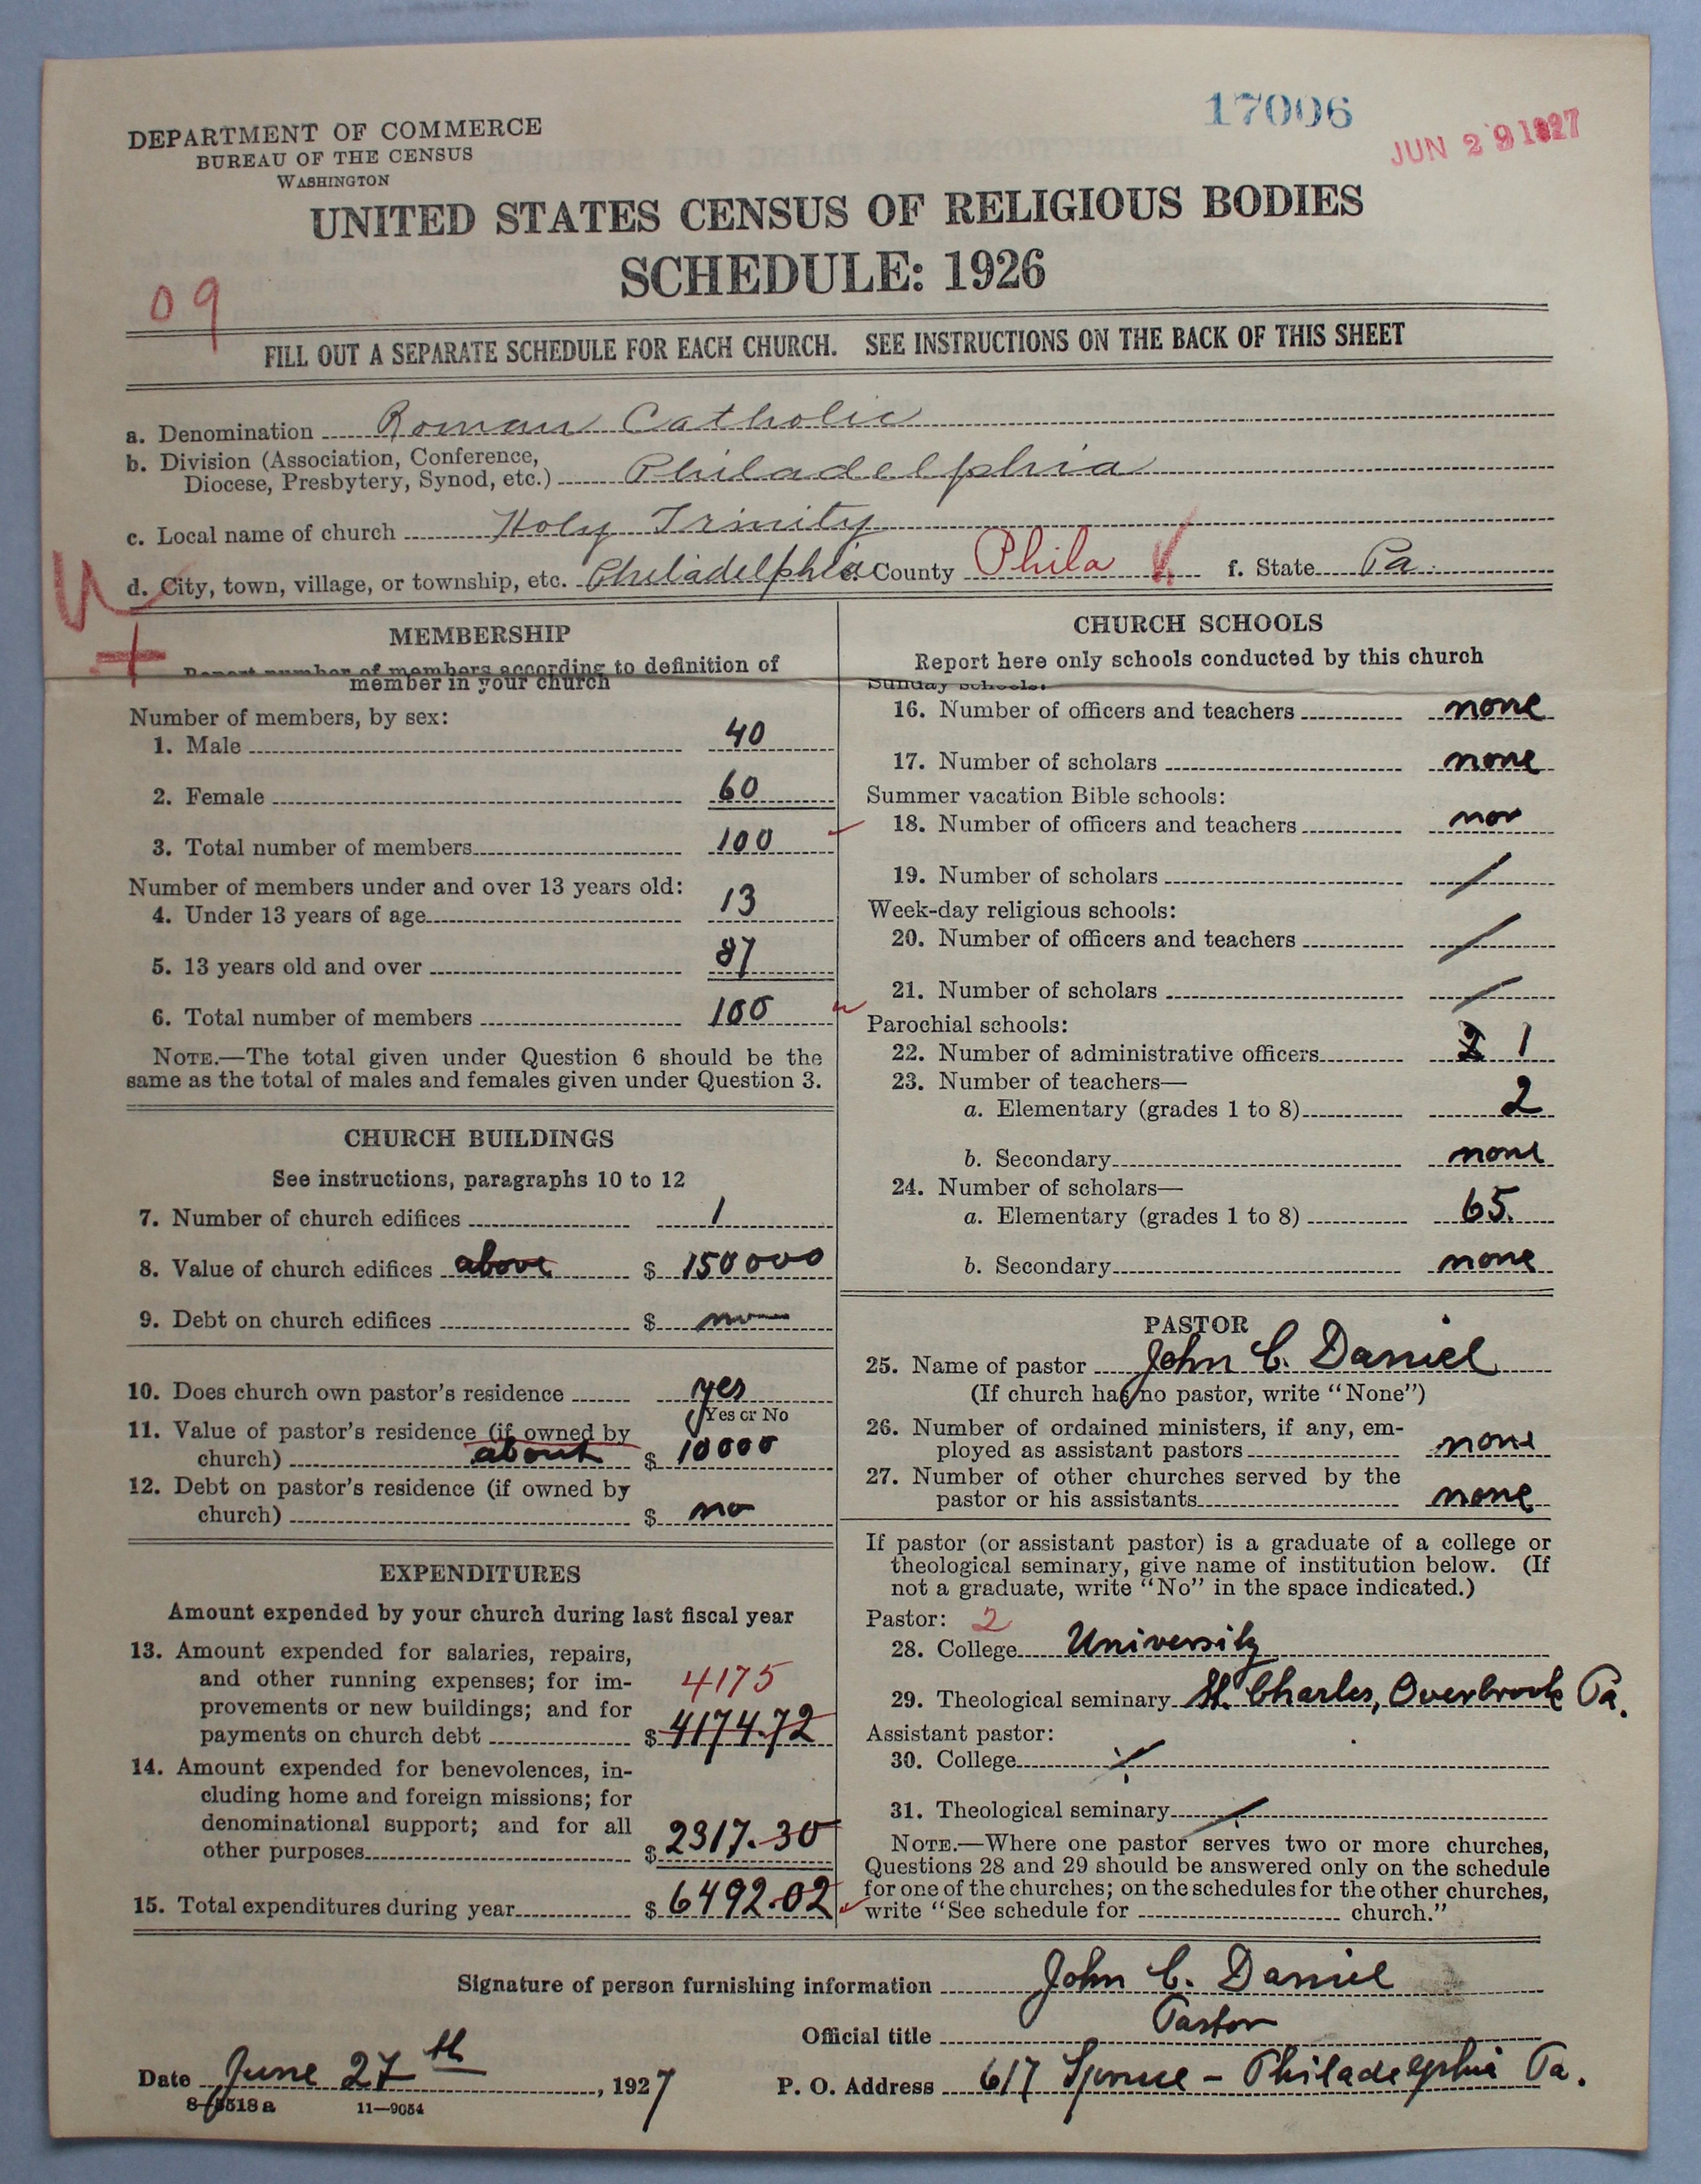 17006
JUN 29 1927
DEPARTMENT OF COMMERCE
BUREAU OF THE CENSUS
WASHINGTON
UNITED STATES CENSUS OF RELIGIOUS BODIES
SCHEDULE: 1926
09
FILL OUT A SEPARATE SCHEDULE FOR EACH CHURCH. SEE INSTRUCTIONS ON THE BACK OF THIS SHEET
a. Denomination Roman Catholic
b. Division (Association, Conference,
Diocese, Presbytery, Synod, etc.) Philadelphia
c. Local name of church Holy Trinity
d. City, town, village, or township, etc. Philadelphia e. County Phila f. State Pa
MEMBERSHIP
Report number of members according to definition of
member in your church
Number of members, by sex:
1. Male 40
2. Female 60
3. Total number of members 100
Number of members under and over 13 years old:
4. Under 13 years of age 13
5. 13 years old and over 87
6. Total number of members 100
NOTE.—The total given under Question 6 should be the
same as the total of males and females given under Question 3.
CHURCH BUILDINGS
See instructions, paragraphs 10 to 12
7. Number of church edifices 1
8. Value of church edifices above $ 150000
9. Debt on church edifices $ no
10. Does church own pastor's residence yes
Yes or No
11. Value of pastor's residence (if owned by
church) about $ 10000
12. Debt on pastor's residence (if owned by
church) $ no
EXPENDITURES
Amount expended by your church during last fiscal year
13. Amount expended for salaries, repairs,
and other running expenses; for im-
provements or new buildings; and for
4175
payments on church debt $ 4174.72
14. Amount expended for benevolences, in-
cluding home and foreign missions; for
denominational support; and for all
other purposes $ 2317.30
15. Total expenditures during year $ 6492.02
CHURCH SCHOOLS
Report here only schools conducted by this church
Sunday schools:
16. Number of officers and teachers none
17. Number of scholars none
Summer vacation Bible schools:
18. Number of officers and teachers non
19. Number of scholars /
Week-day religious schools:
20. Number of officers and teachers /
21. Number of scholars /
Parochial schools:
22. Number of administrative officers 2 1
23. Number of teachers—
a. Elementary (grades 1 to 8) 2
b. Secondary none
24. Number of scholars—
a. Elementary (grades 1 to 8) 65.
b. Secondary none
PASTOR
25. Name of pastor John C. Daniel
(If church has no pastor, write "None")
26. Number of ordained ministers, if any, em-
ployed as assistant pastors none
27. Number of other churches served by the
pastor or his assistants none
If pastor (or assistant pastor) is a graduate of a college or
theological seminary, give name of institution below. (If
not a graduate, write "No" in the space indicated.)
Pastor: 2
28. College University
29. Theological seminary St. Charles, Overbrook Pa.
Assistant pastor:
30. College /
31. Theological seminary /
NOTE.—Where one pastor serves two or more churches,
Questions 28 and 29 should be answered only on the schedule
for one of the churches; on the schedules for the other churches,
write "See schedule for church."
Signature of person furnishing information John C. Daniel
Official title Pastor
Date June 27th, 1927 P. O. Address 617 Spruce - Philadelphia Pa.
8-5518a 11—9054